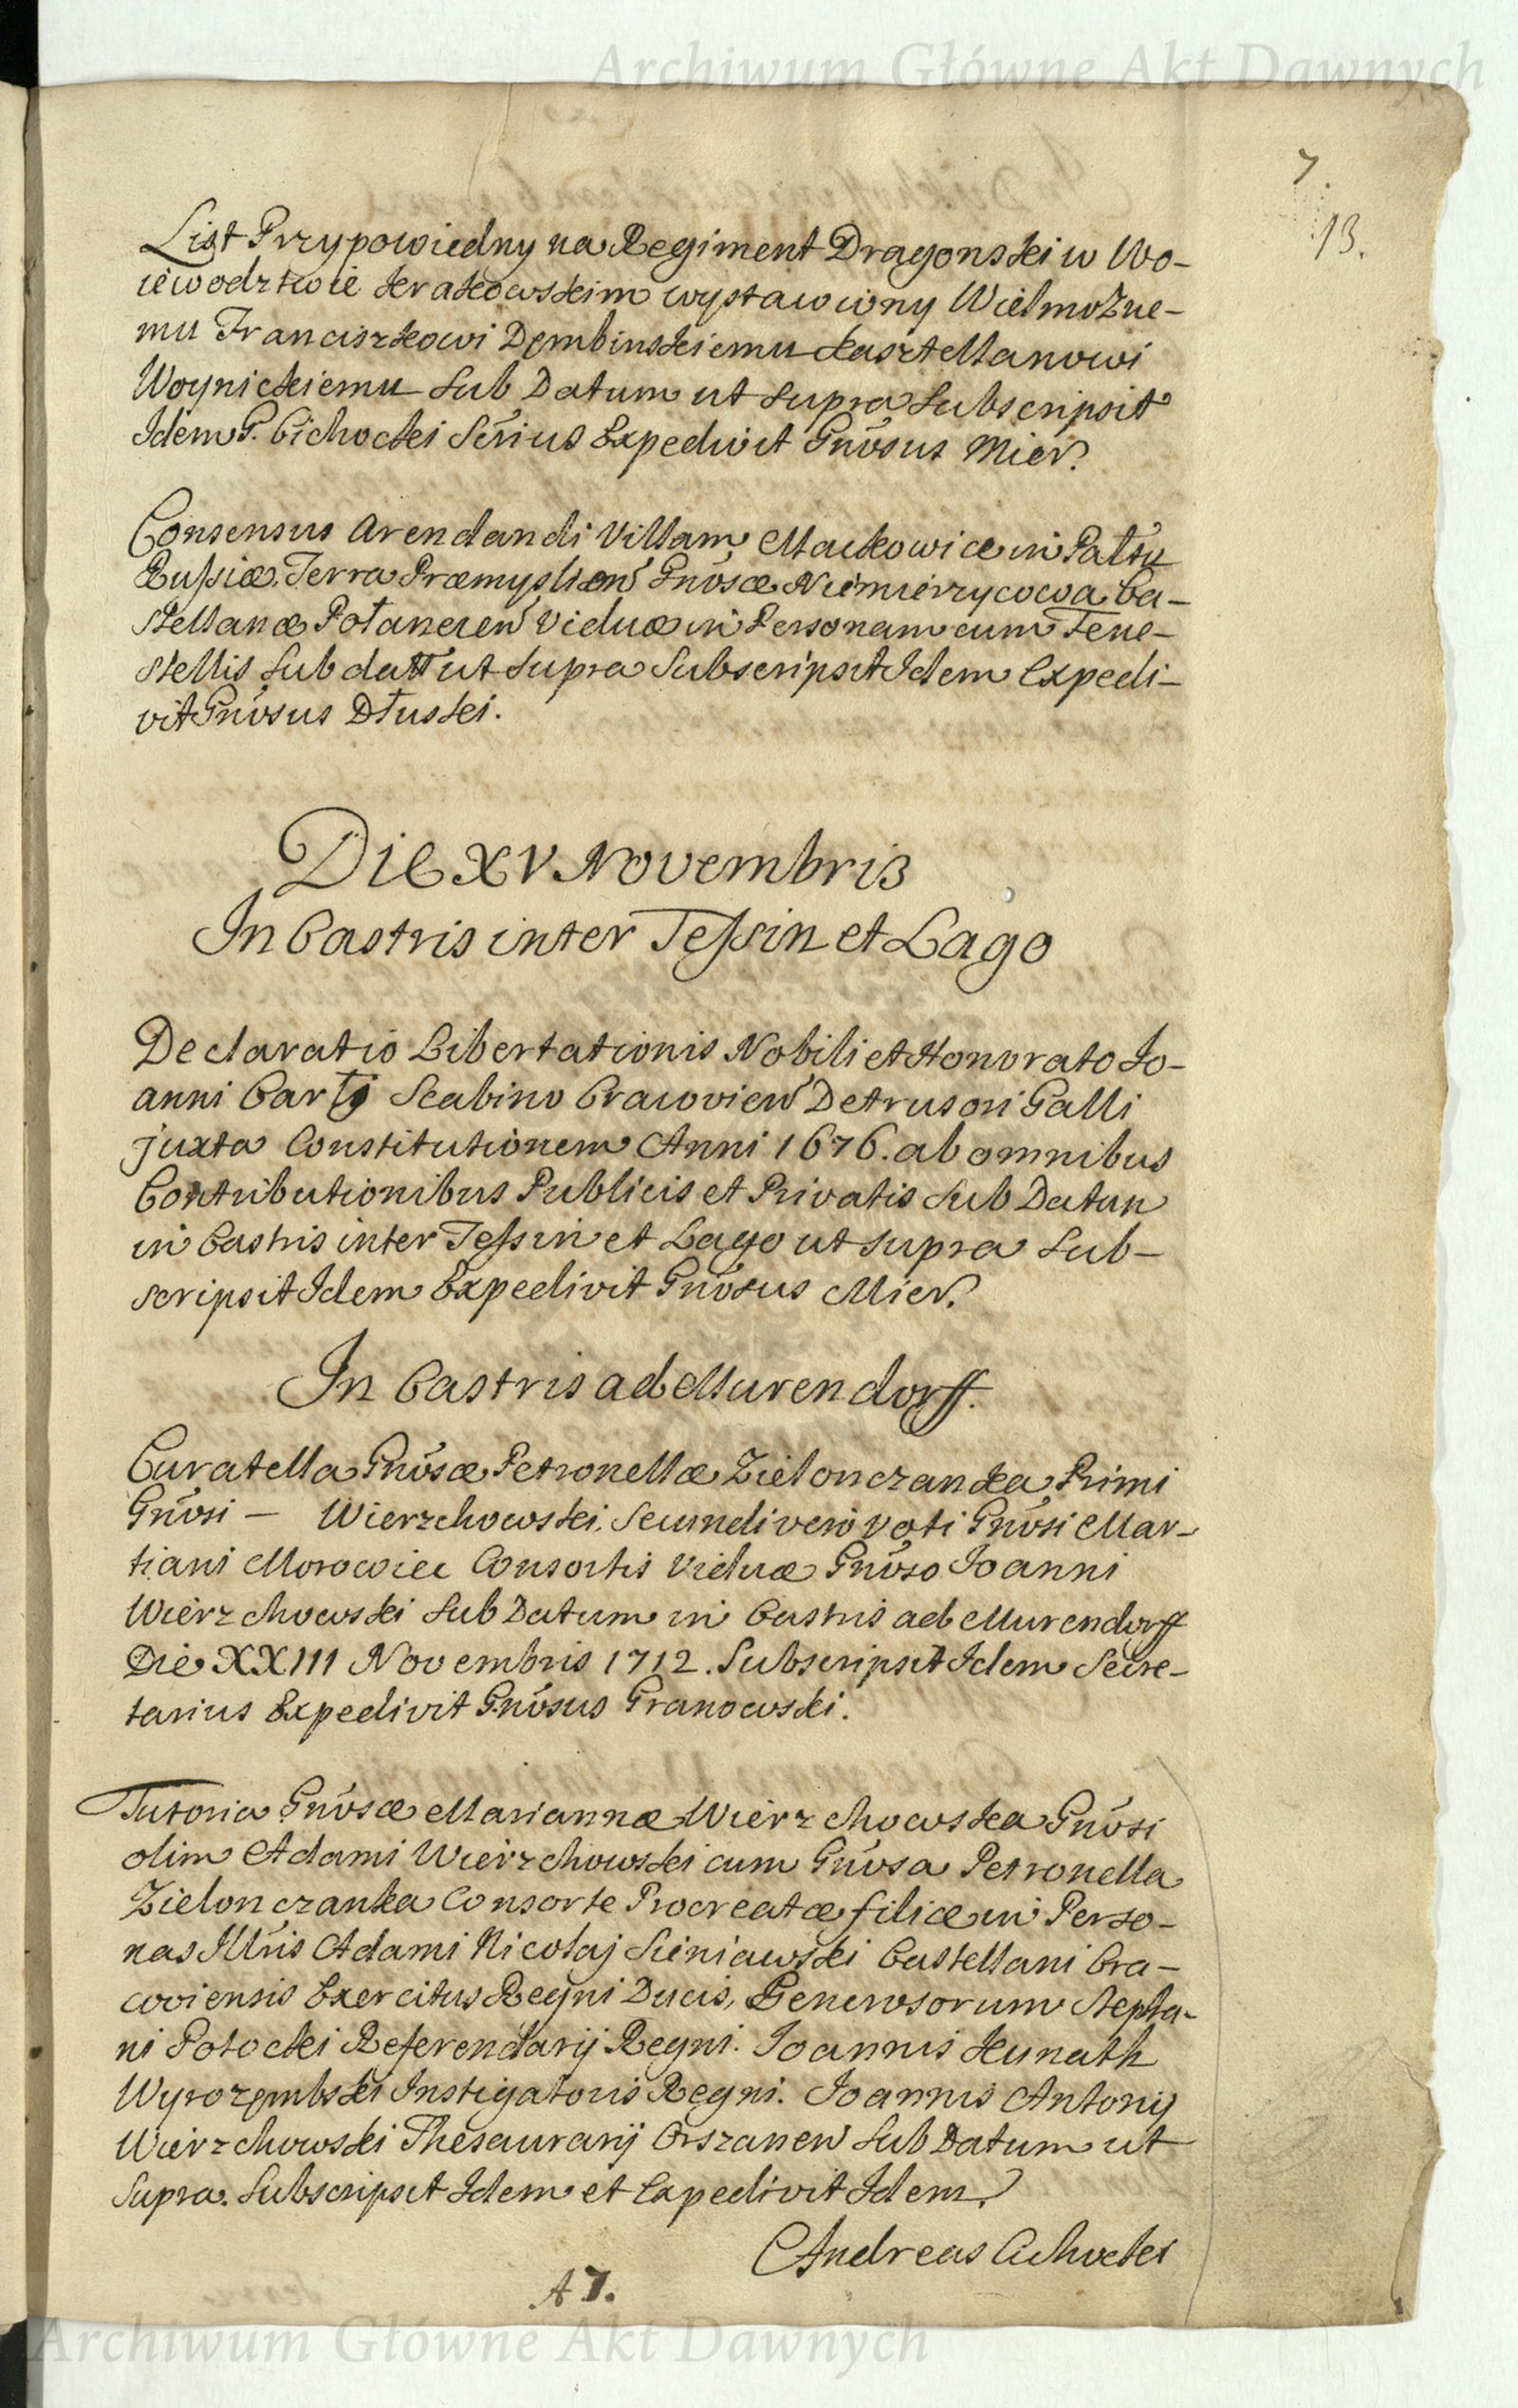 Archiwum Główne Akt Dawnych
7.
13.
List Przypowiedny na Regiment Dragonski w Wo-
iewodztwie krakowskim wystawiony Wielmożne-
mu Franciszkowi Dembinskiemu kasztellanowi
Woynickiemu Sub Datum ut supra Subscripsit
Idem G. Cichocki Sĕrius Expedivit Gnŏsus Mier.
Consensus Arendandi Villam Mackowice in Palŭ
Russiæ, Terra Præmyslieñ Gnŏsæ Niemierzycowa Ca-
stellanæ Połaneceñ Viduæ in Personam cum Fene-
stellis Sub datt ut supra Subscripsit Idem Expedi-
vit Gnŏsus Dłuski.
Die XV Novembris
In Castris inter Tessin et Lago
Declaratio Libertationis Nobili et Honorato Jo-
anni Scabino Cracovieñ Detrusori Galli
juxta Constitutionem Anni 1676. ab omnibus
Contributionibus Publicis et Privatis Sub Datum
in Castris inter Tessin et Lago ut supra Sub-
scripsit Idem Expedivit Gnŏsus Mier.
In Castris ad Murendorff.
Curatella Gnŏsæ Petronellæ Zielonczanka Primi
Gnŏsi – Wierzchowski, Secundi vero voti Gnŏsi Mar-
tiani Morowiec Consortis Viduæ Gnŏso Joanni
Wierzchowski Sub Datum in Castris ad Murendorff
Die XXIII Novembris 1712. Subscripsit Idem Secre-
tarius Expedivit Gnŏsus Granowski.
Tutoria Gnŏsæ Mariannæ Wierzchowska Gnŏsi
olim Adami Wierzchowski cum Gnŏsa Petronella
Zielonczanka Consorte Procreatæ filiæ in Perso-
nas Illŭis Adami Nicolaj Sieniawski Castellani Cra-
coviensis Exercitus Regni Ducis, Generosorum Stepha-
ni Potocki Referendarij Regni. Joannis Kunath
Wyrozembski Instigatoris Regni. Joannis Antonij
Wierzchowski Thesaurarij Orszaneñ Sub Datum ut
Supra. Subscripsit Idem et Expedivit Idem.
Andreas Cichocki
A7.
Archiwum Główne Akt Dawnych